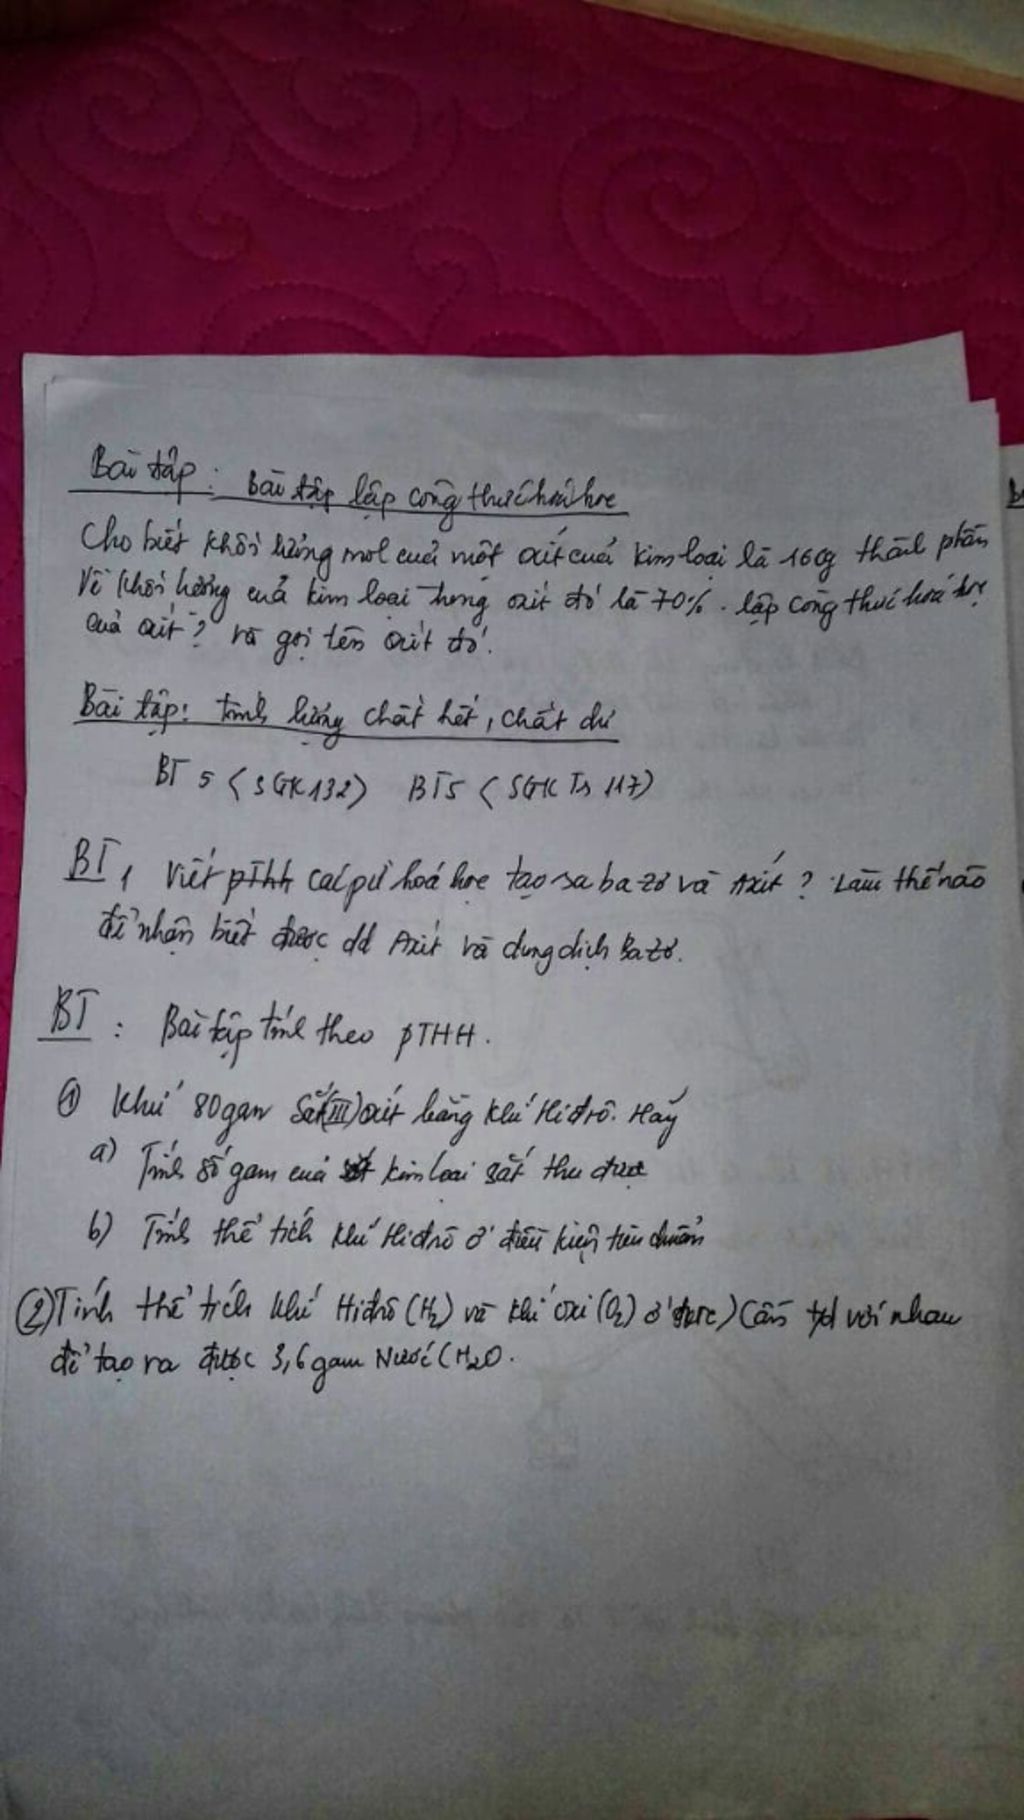 Bài tập: Bài tập lập công thức hoá học
Cho biết khối lượng mol của một oxit của kim loại là 160g thành phần
Về khối lượng của kim loại trong oxit đó là 70%. lập công thức hoá học
của oxit? và gọi tên oxit đó.
Bài tập: tính lượng chất hết, chất dư
BT 5 (SGK 132) BT5 (SGK Tr 117)
BT1 Viết PTHH các pứ hoá học tạo ra bazơ và Axit? Làm thế nào
để nhận biết được dd Axit và dung dịch Bazơ.
BT: Bài tập tính theo PTHH.
① Khử 80gam Sắt(III)oxit bằng khí Hiđrô. Hãy
a) Tính số gam của kim loại sắt thu được
b) Tính thể tích khí Hiđrô ở điều kiện tiêu chuẩn
②) Tính thể tích khí Hiđrô (H₂) và khí oxi (O₂) ở đktc) Cần t/d với nhau
để tạo ra được 3,6gam Nước (H₂O.